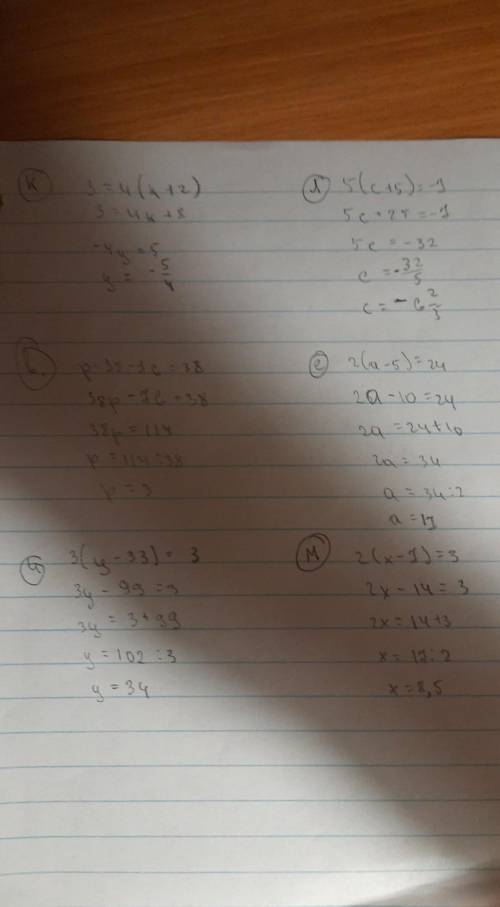 К
3 = 4(x+2)
3 = 4x+8
-4y = 5
y = -5/4
Л
5(c+5) = -7
5c+25 = -7
5c = -32
c = -32/5
c = -6 2/5
38p = 114
p = 114:38
p = 3
С
2(a-5) = 24
2a-10 = 24
2a = 24+10
2a = 34
a = 34:2
a = 17
3(y-33) = 3
3y-99 = 3
3y = 3+99
y = 102:3
y = 34
М
2(x-7) = 3
2x-14 = 3
2x = 14+3
x = 17:2
x = 8,5